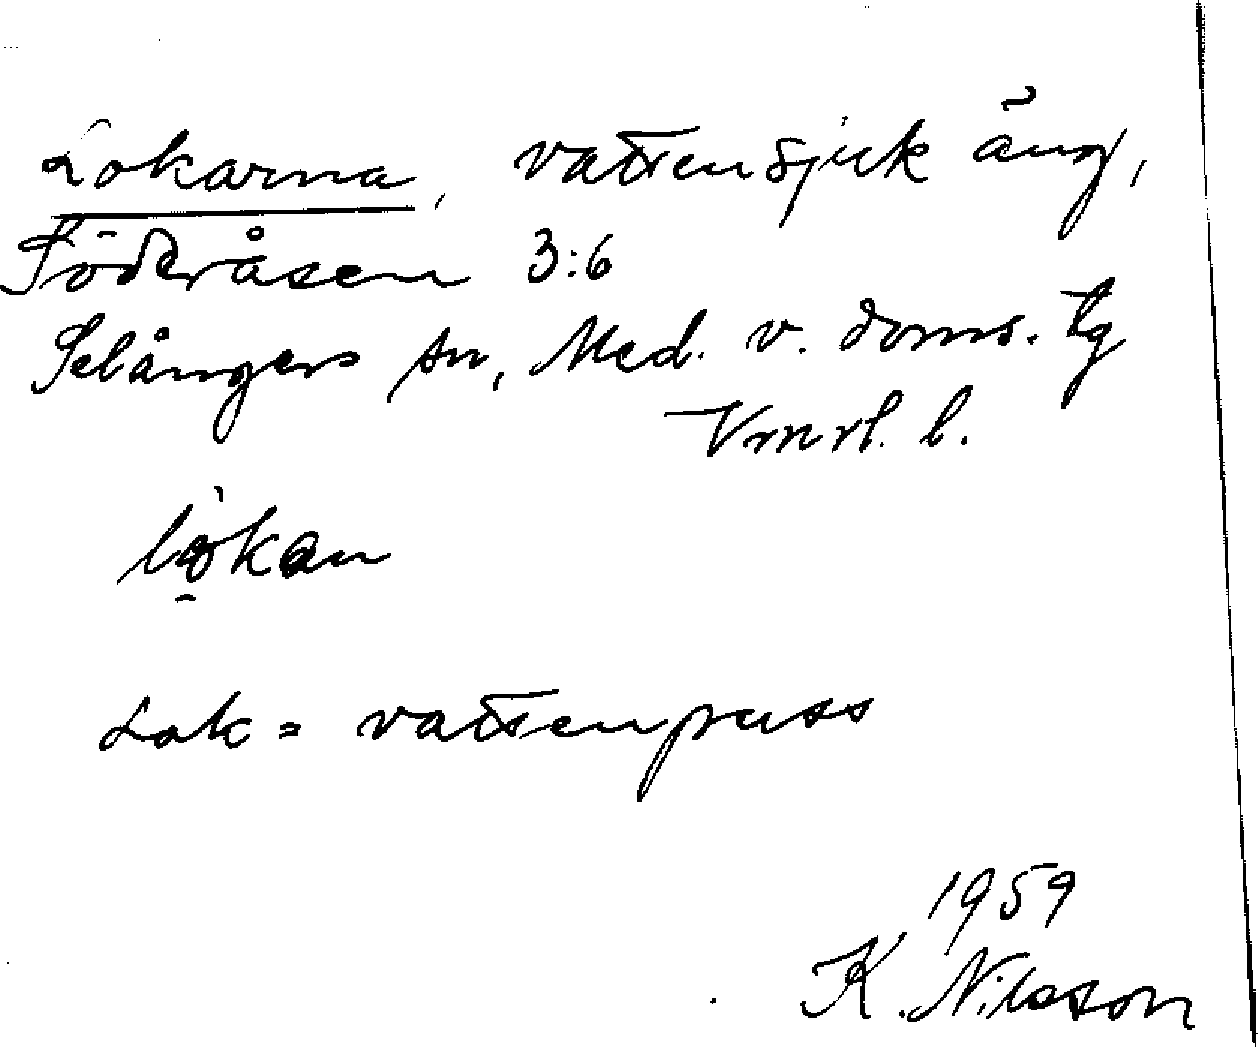 Lokarna, vattensjuk äng,
Söderåsen 3:6
Selångers sn, Med. v. doms. tg
Vrnrl. l.
lo̠kan
Lok = vattenpuss
1959
K. Nilsson